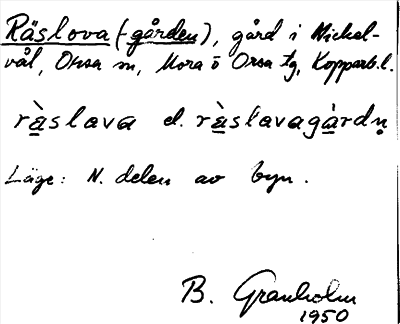 Räslova (-gården), gård i Mickel-
vål, Orsa sn, Mora o Orsa tg, Kopparb.l.
rä̀slava el. rä̀slavagàrdṇ
Läge: N. delen av byn.
B. Granholm
1950